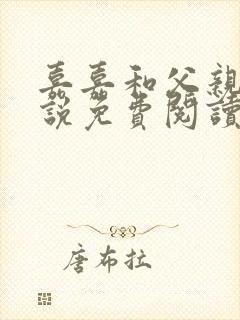 嘉嘉和父親
說免費閱讀
唐布拉